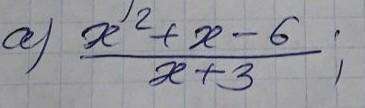 а) x² + x - 6 / x + 3 ;